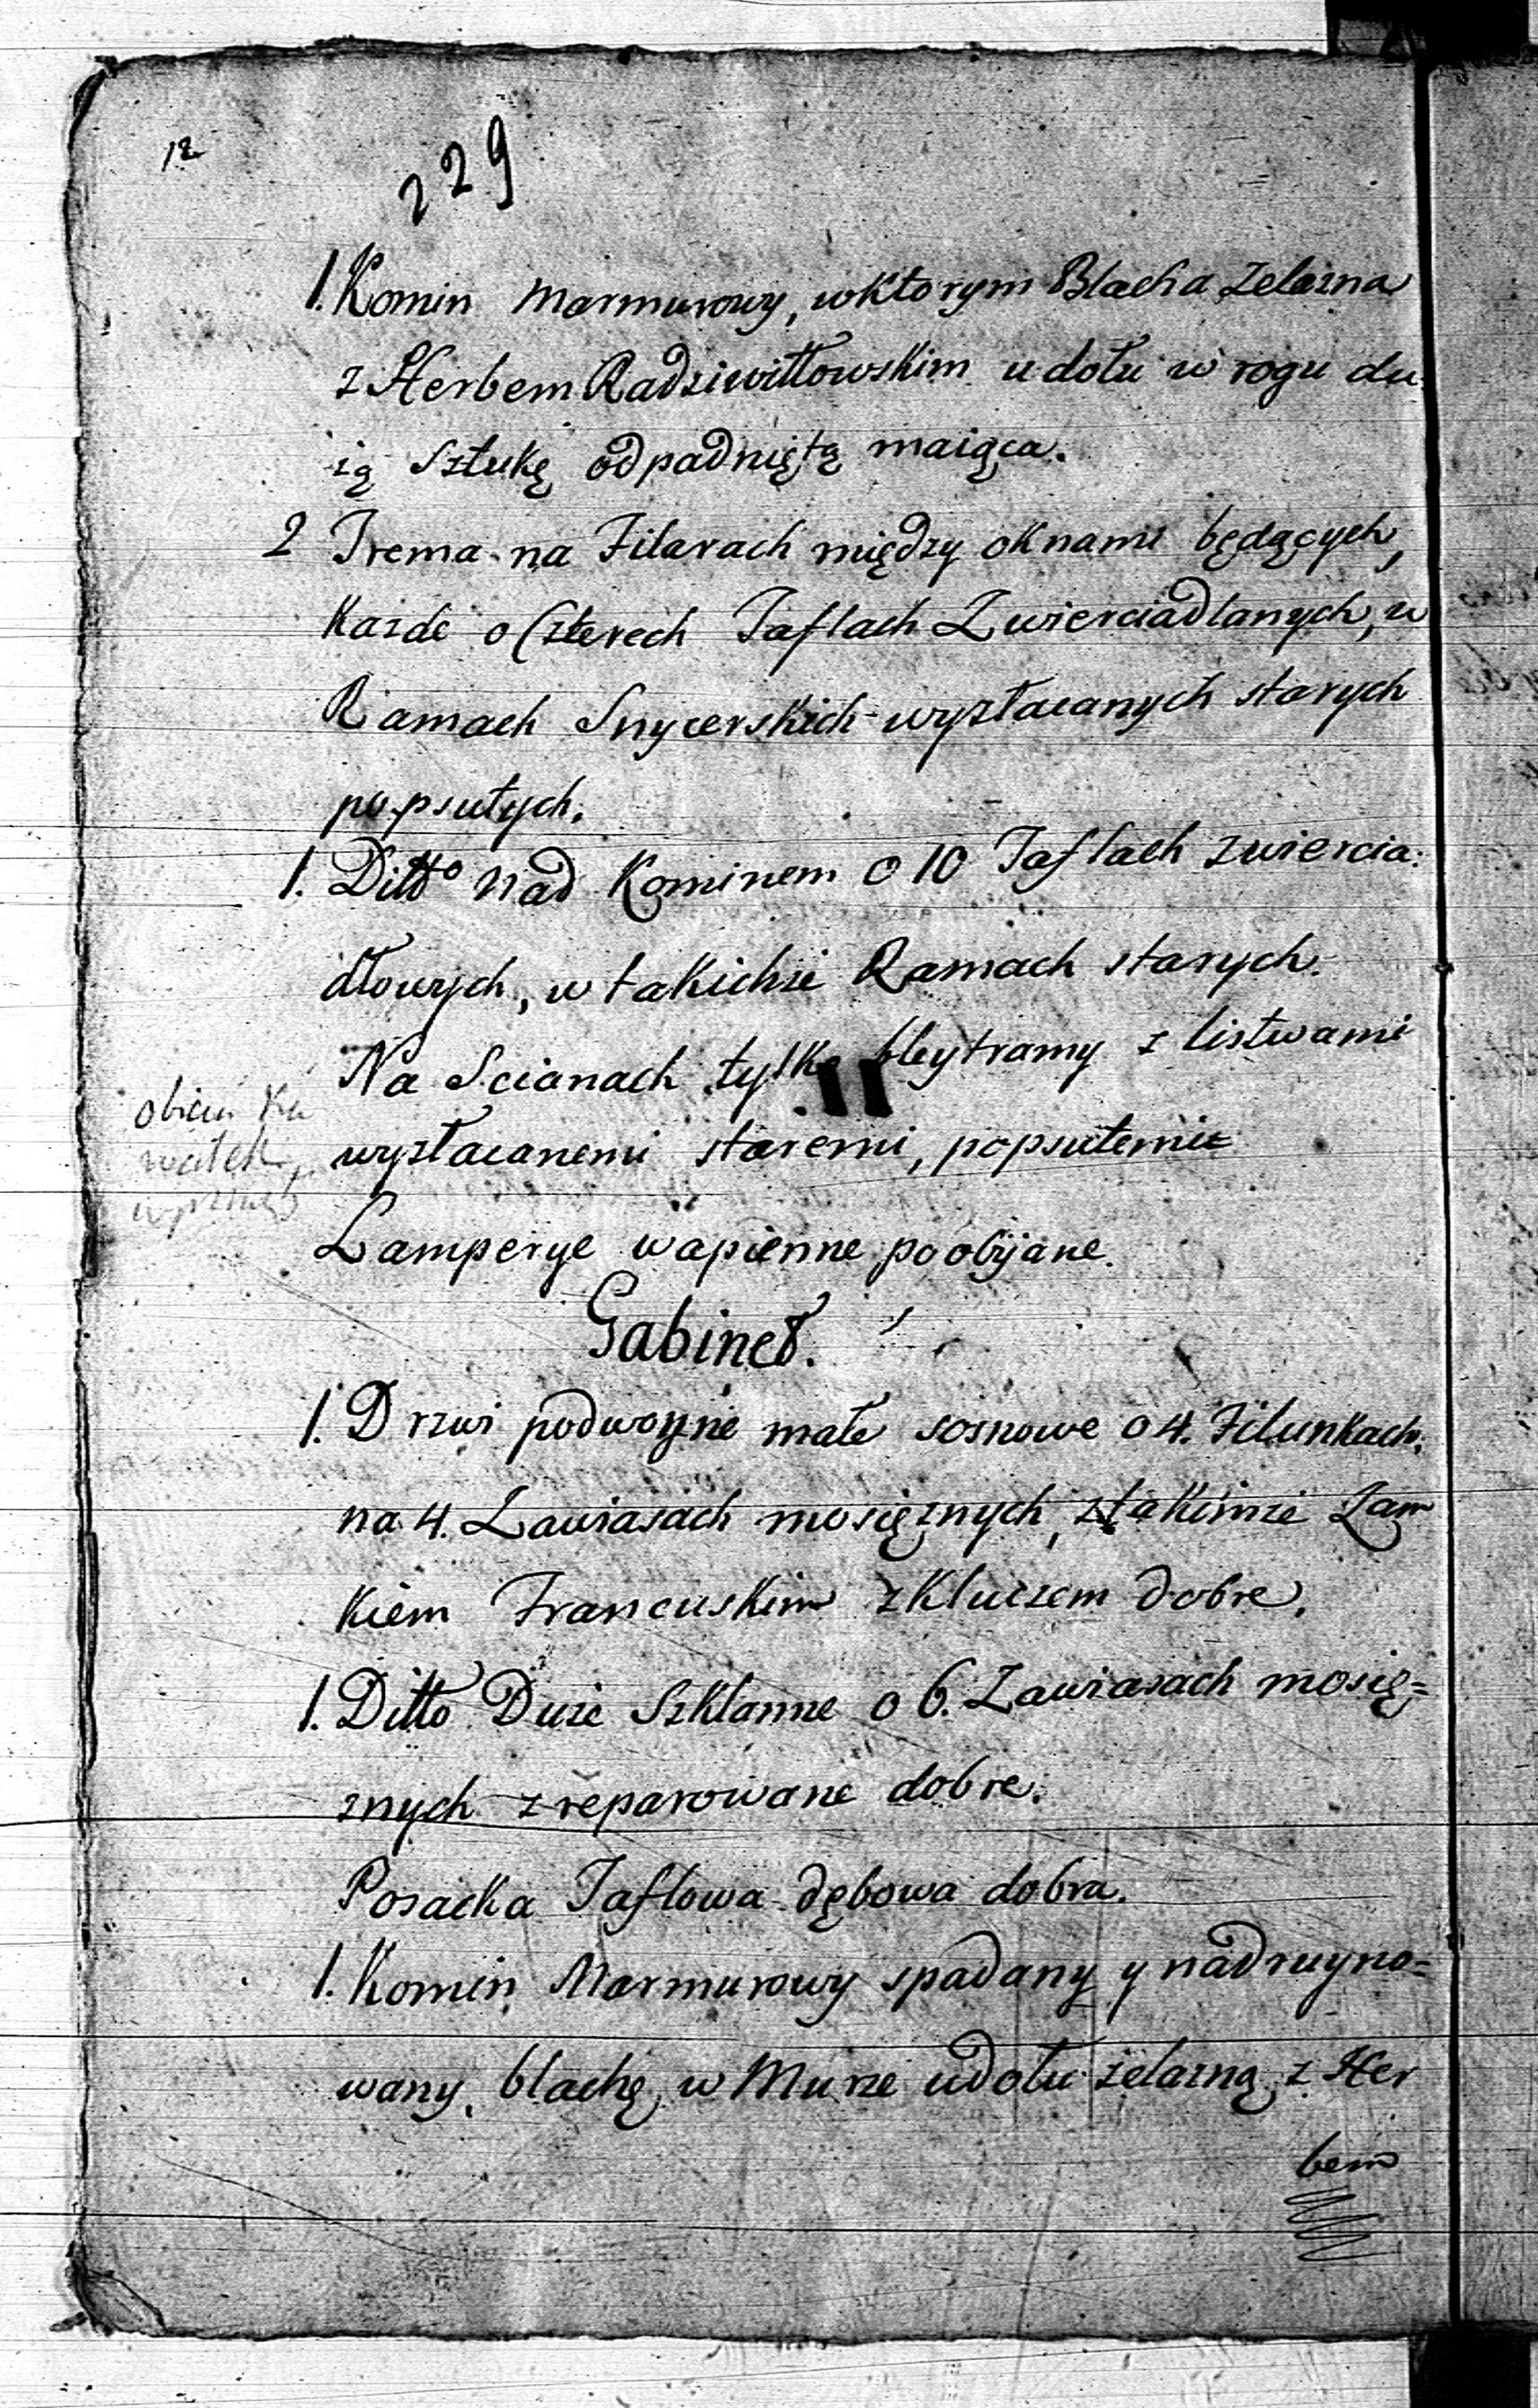 12
229
1. Komin Marmurowy, wktorym Blacha zelazna
z Herbem Radziwiłłowskim u dołu w rogu du
żą Sztukę odpadniętą maiąca.
2 Trema na Filarach między oknami będących,
Kazde o Czterech Taflach Zwierciadlanych, w
Ramach Snycerskich wyzłacanych starych
popsutych.
1. Ditto Nad Kominem o 10 Taflach zwiercia:
dłowych, w takichże Ramach starych.
Na Scianach tylko bleytramy z listwami
obicia
wyzłacanemi staremi, popsutemi
Lamperye wapienne poobijane.
Gabinet.
1. Drzwi podwoyne małe sosnowe o 4. Filunkach.
na 4. Zawiasach mosiężnych, ztakimże Zam
kiem Francuskim zKluczem dobre.
1. Ditto Duże Szklanne o 6. Zawiasach mosię=
znych zreparowane dobre.
Posacka Taflowa dębowa dobra.
1. Komin Marmurowy spadany y nadruyno=
wany, blachę w Murze udołu żelazną z Her
bem